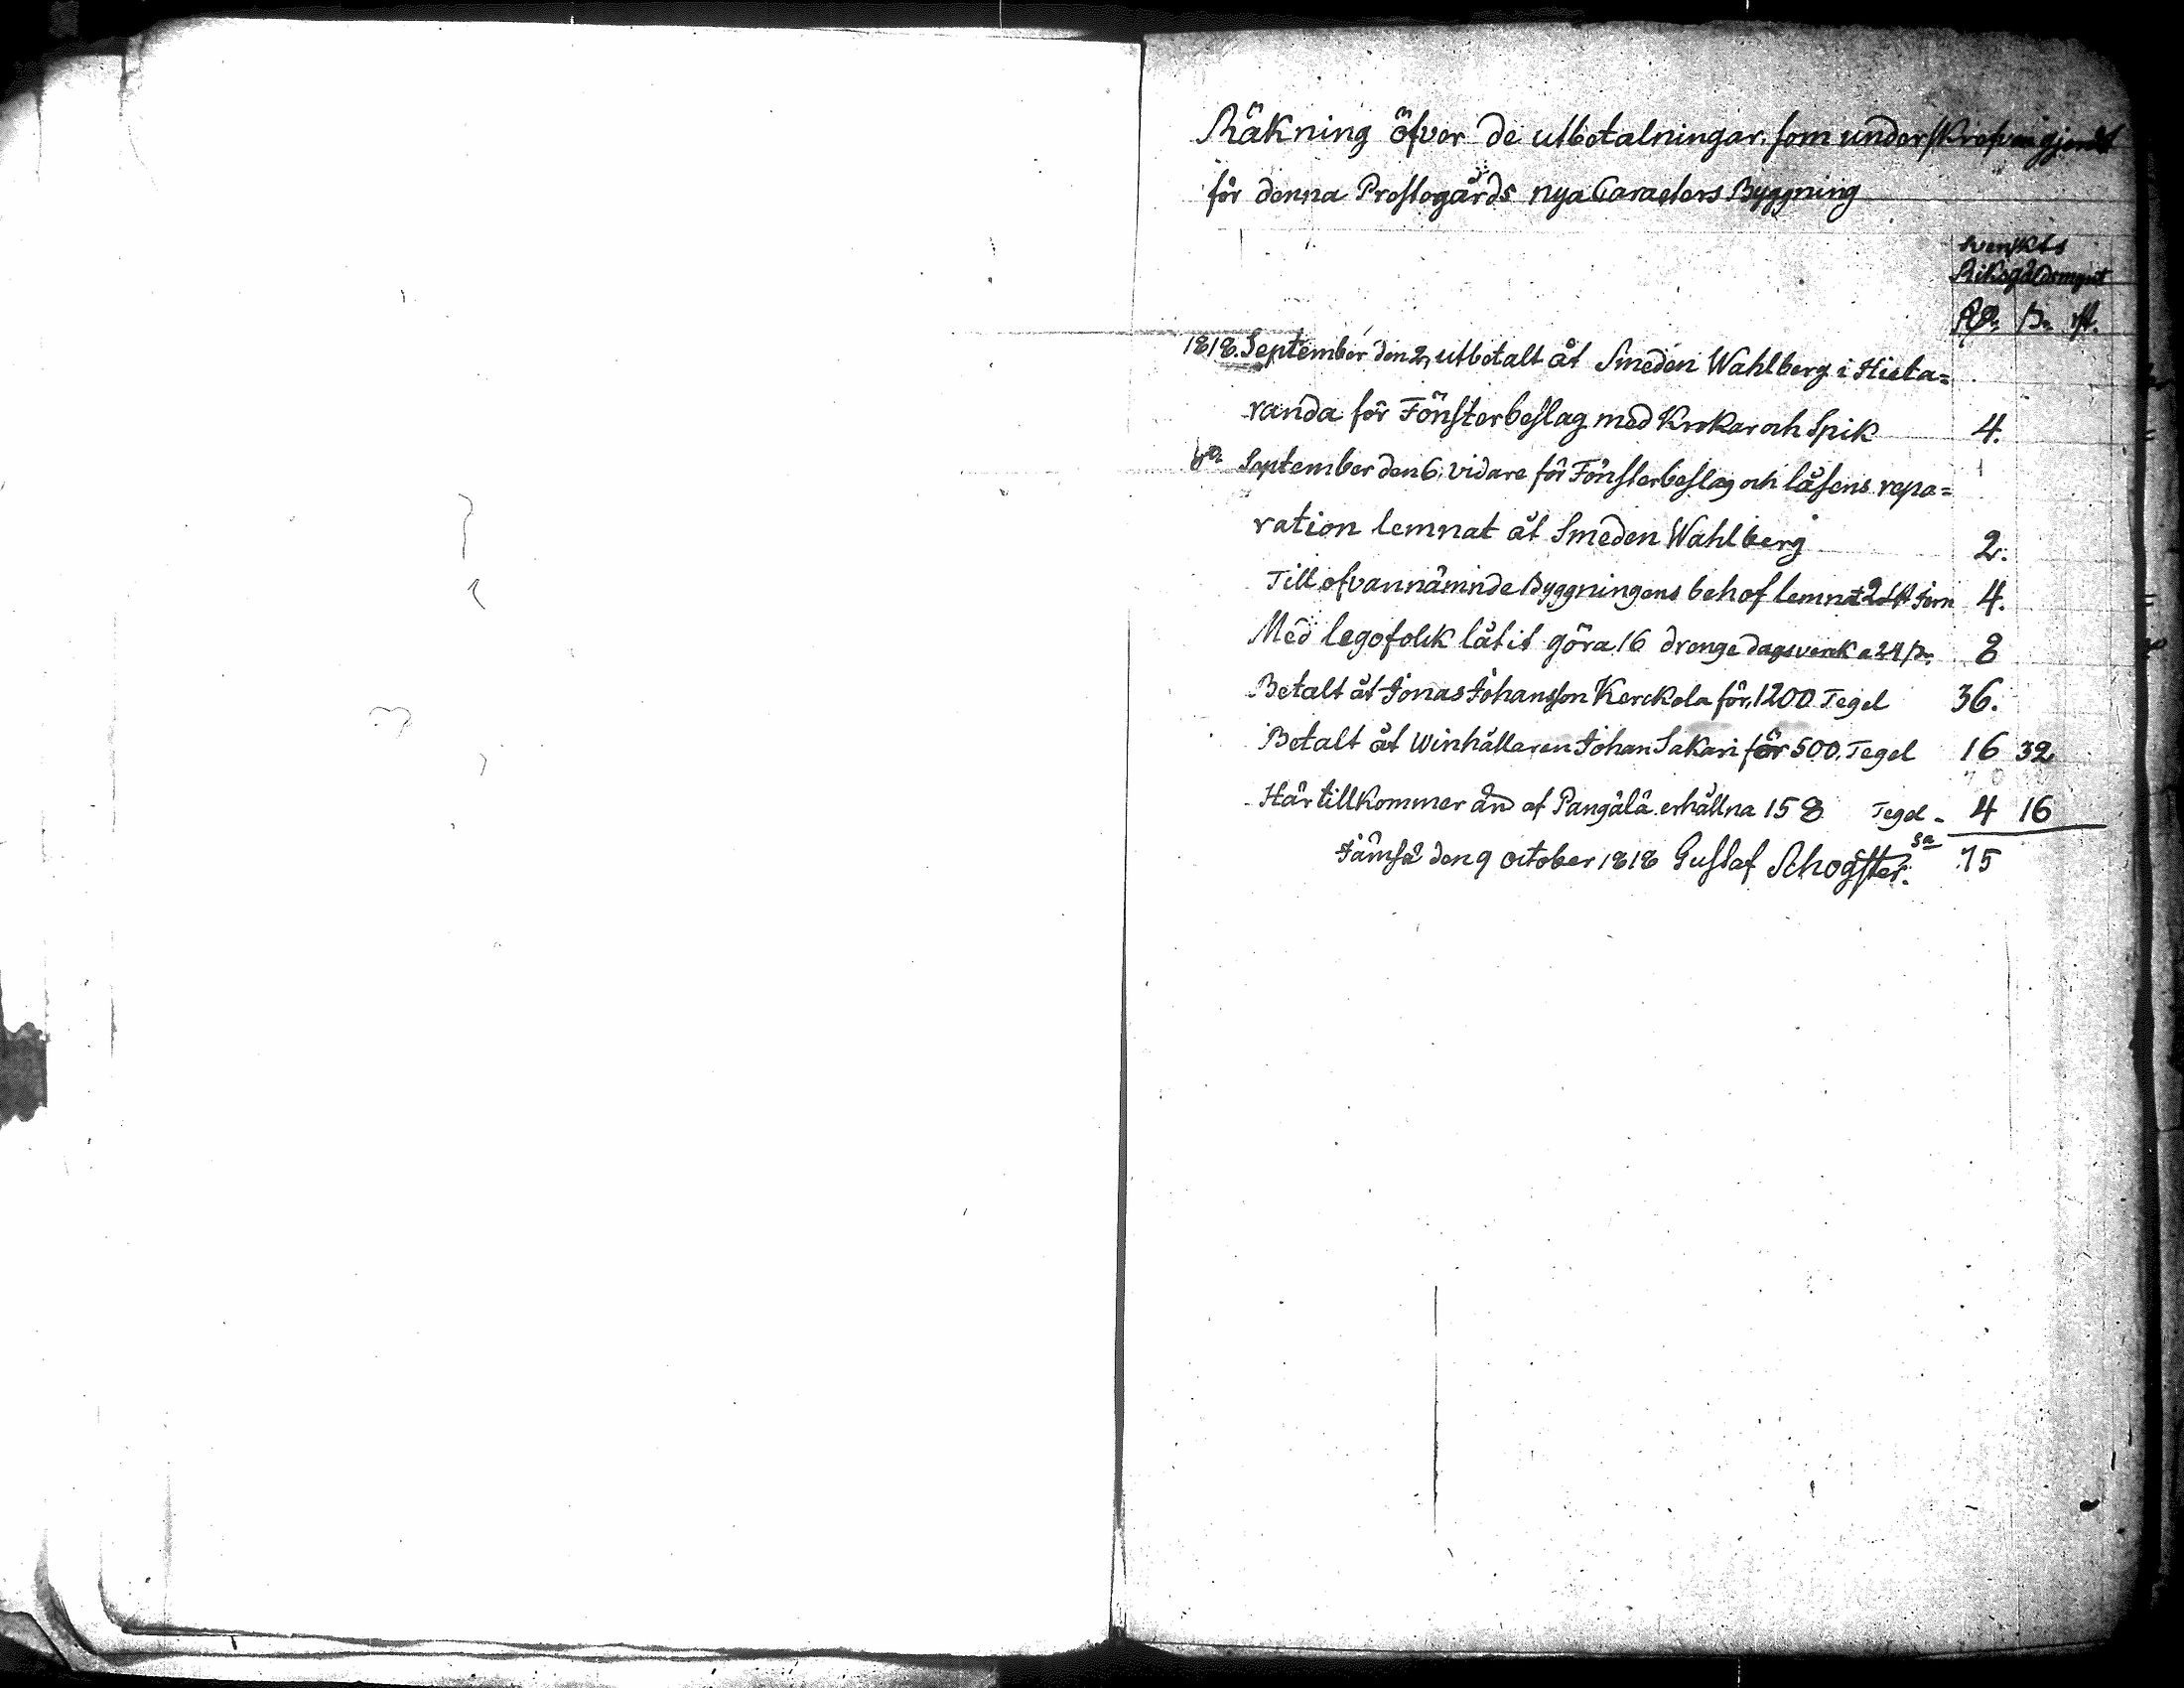 Räkning öfver de utbetalningar, som underskrefven gjordt
för denna Prostogårds nya Caracters Byggning
Svenskt
Riksgäldsmynt
RD. ß. rst.
1818. September den 2, utbetalt åt Smeden Wahlberg i Hieta=
randa för Fönsterbeslag med Krokar och Spik 4.
September den 6, vidare för Fönsterbeslag och låsens repa=
ration lemnat åt Smeden Wahlberg 2.
Till ofvannämnde Byggningens behof lemnat 2 L℔ Jern 4.
Med legofolk låtit göra 16 drenge dagsverk a 24 ß. 8
Betalt åt Jonas Johansson Kerckela för, 1200 Tegel 36.
Betalt åt Winhållaren Johan Sakari för 500. Tegel 16 32
Här tillkommer än af Pangälä erhållna 158 Tegel - 4 16
Jämfä den 9 october 1818 Gustaf Schogster. Sa 75